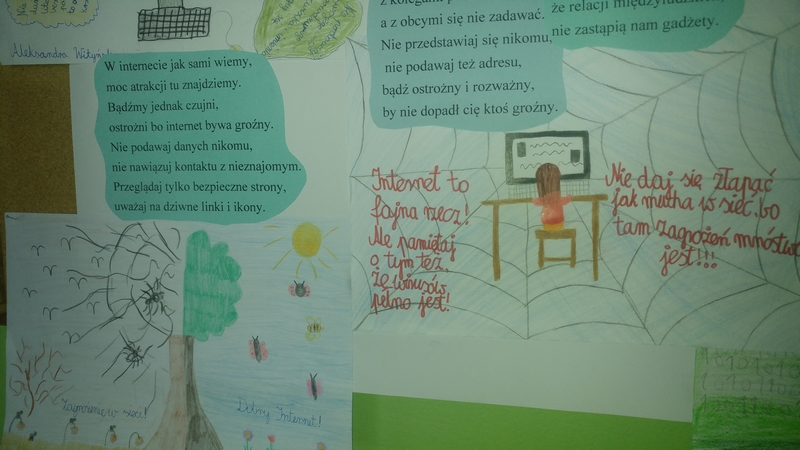 Aleksandra
W internecie jak sami wiemy,
moc atrakcji tu znajdziemy.
Bądźmy jednak czujni,
ostrożni bo internet bywa groźny.
Nie podawaj danych nikomu,
nie nawiązuj kontaktu z nieznajomym.
Przeglądaj tylko bezpieczne strony,
uważaj na dziwne linki i ikony.
z kolegami
a z obcymi się nie zadawać.
Nie przedstawiaj się nikomu,
nie podawaj też adresu,
bądź ostrożny i rozważny,
by nie dopadł cię ktoś groźny.
że relacji
nie zastąpią nam gadżety.
Internet to
fajna rzecz!
Ale pamiętaj
o tym też,
że wirusów
pełno jest!
Nie daj się złapać
jak mucha w sieć, bo
tam zagrożeń mnóstwo
jest!!!
Zagrożenie w sieci!
Dobry Internet!